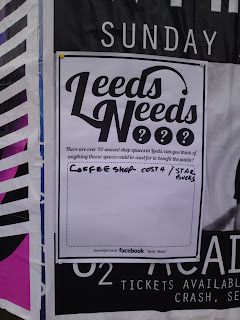 SUNDAY
Leeds
Needs
N???
There are over 90 unused shop spaces in Leeds, can you think of
anything those spaces could be used for to benefit the public?
COFFEE SHOP COSTA / STAR
BUCKS
facebook "Leeds Needs"
O2 ACAD
TICKETS AVAILABL
CRASH, SE